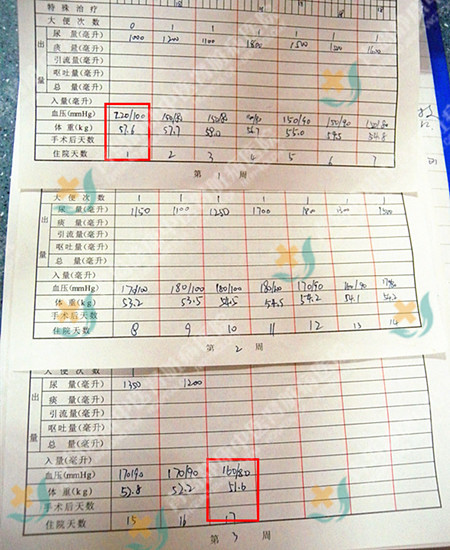 特殊治疗
大便次数 0 1 1 1 1 1 1
出量
尿量(毫升) 1000 1200 1100 1800 1500
痰量(毫升)
引流量(毫升)
呕吐量(毫升)
总量(毫升)
入量(毫升)
血压(mmHg) 220/100 150/80 150/80 150/90 150/90
体重(kg) 57.6 57.7 58.0 56.7 55.0 54.8
手术后天数
住院天数 1 2 3 4 5 6 7
第 1 周
大便次数 1 1 1 1 1 1 1
出量
尿量(毫升) 1150 1100 1250 1700
痰量(毫升)
引流量(毫升)
呕吐量(毫升)
总量(毫升)
入量(毫升)
血压(mmHg) 170/100 180/100 180/100 180/80 170/90
体重(kg) 53.2 53.5 54.5 54.5 54.2 54.1
手术后天数
住院天数 8 9 10 11 12 13 14
第 2 周
大便次数
出量
尿量(毫升) 1350 1200
痰量(毫升)
引流量(毫升)
呕吐量(毫升)
总量(毫升)
入量(毫升)
血压(mmHg) 170/90 170/90 160/80
体重(kg) 52.8 52.2 51.6
手术后天数
住院天数 15 16 17
第 3 周